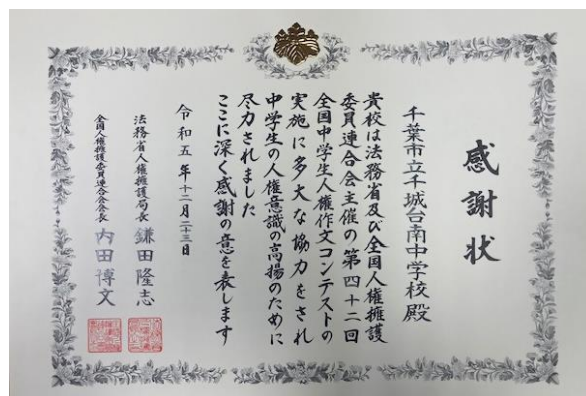 感謝状
千葉市立千城台南中学校殿
貴校は法務省及び全国人権擁護
委員連合会主催の第四十二回
全国中学生人権作文コンテストの
実施に多大な協力をされ
中学生の人権意識の高揚のために
尽力されました
ここに深く感謝の意を表します
令和五年十二月二十三日
法務省人権擁護局長 鎌田隆志
全国人権擁護委員連合会会長 内田博文